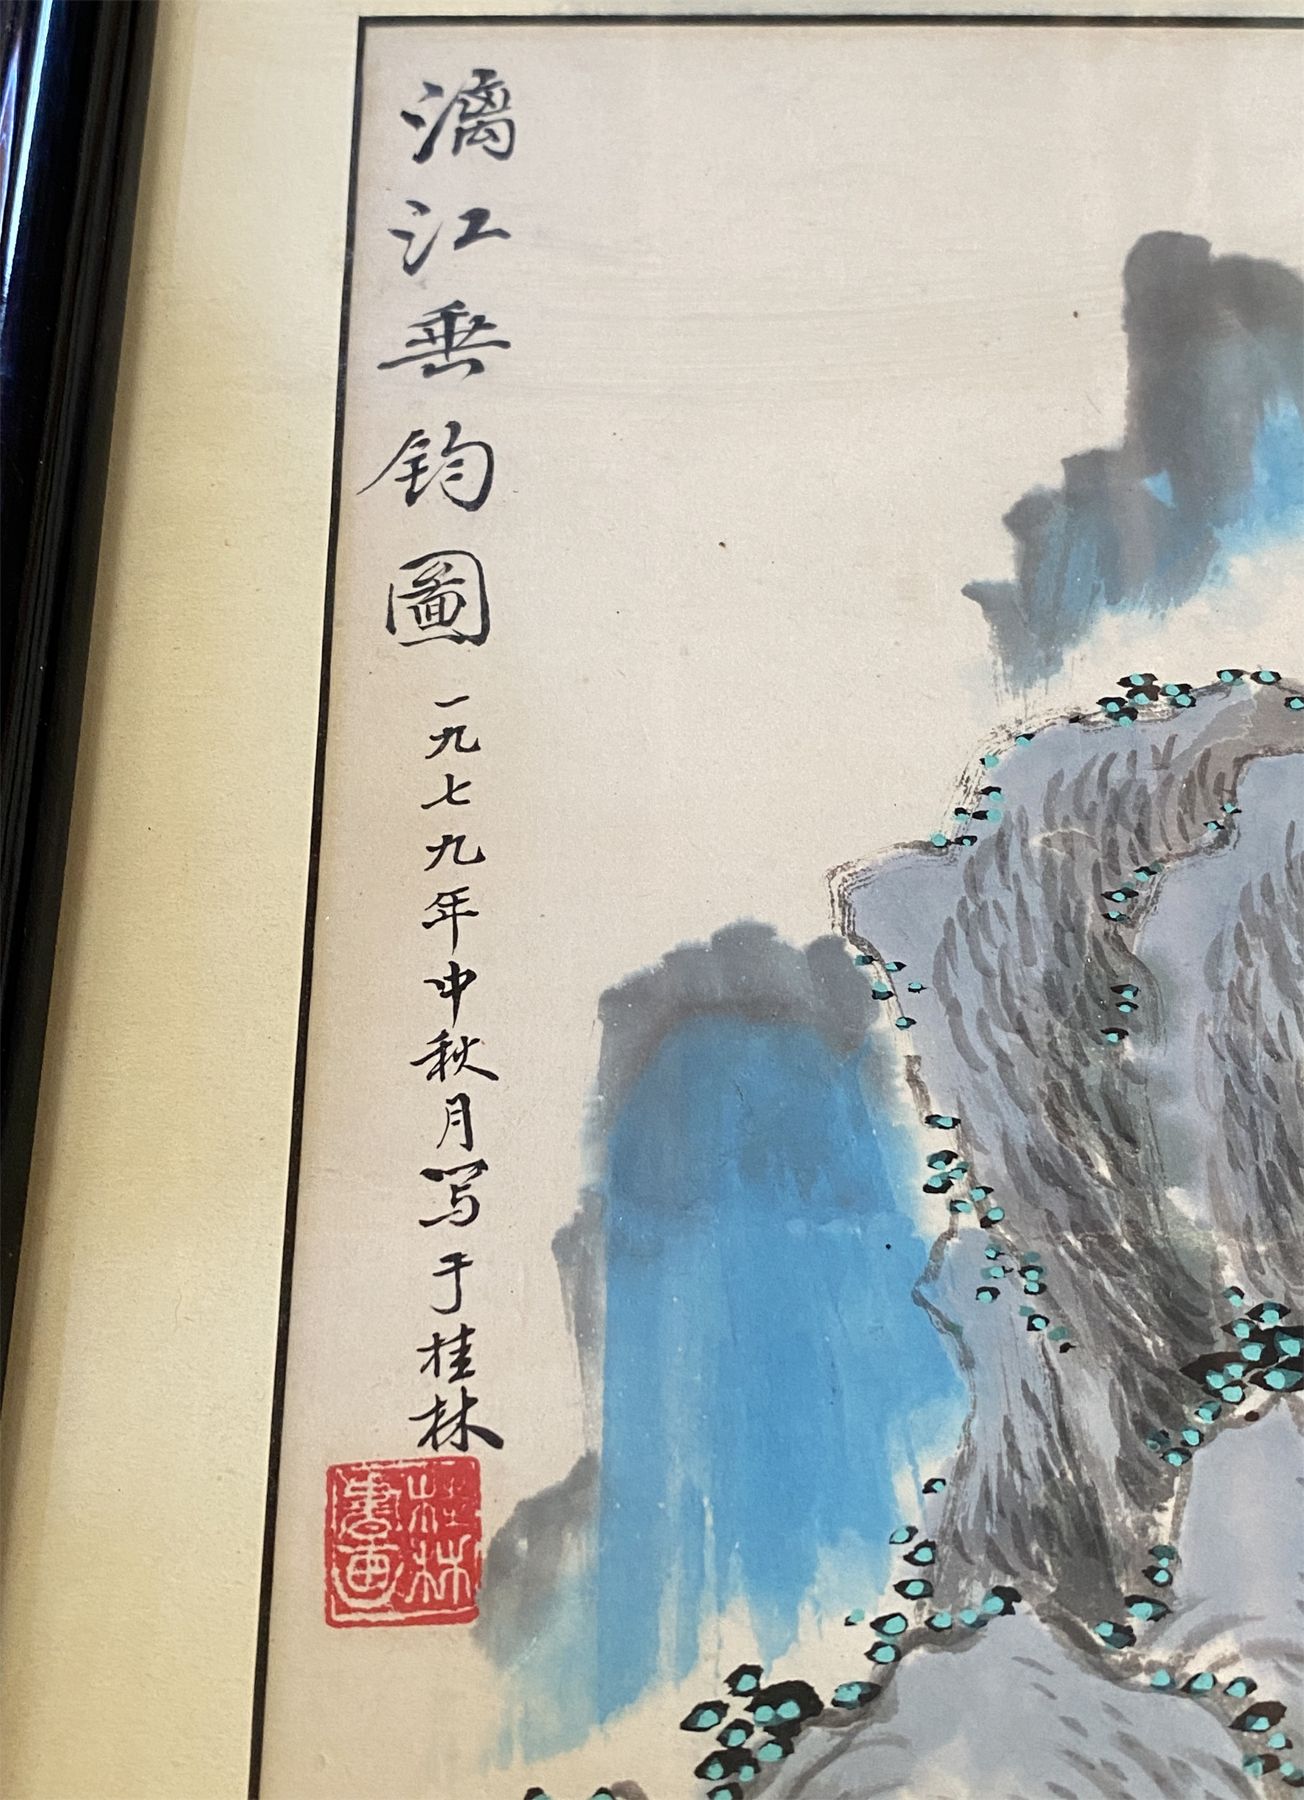 漓江垂钓圖
一九七九年中秋月写于桂林
桂林
書画